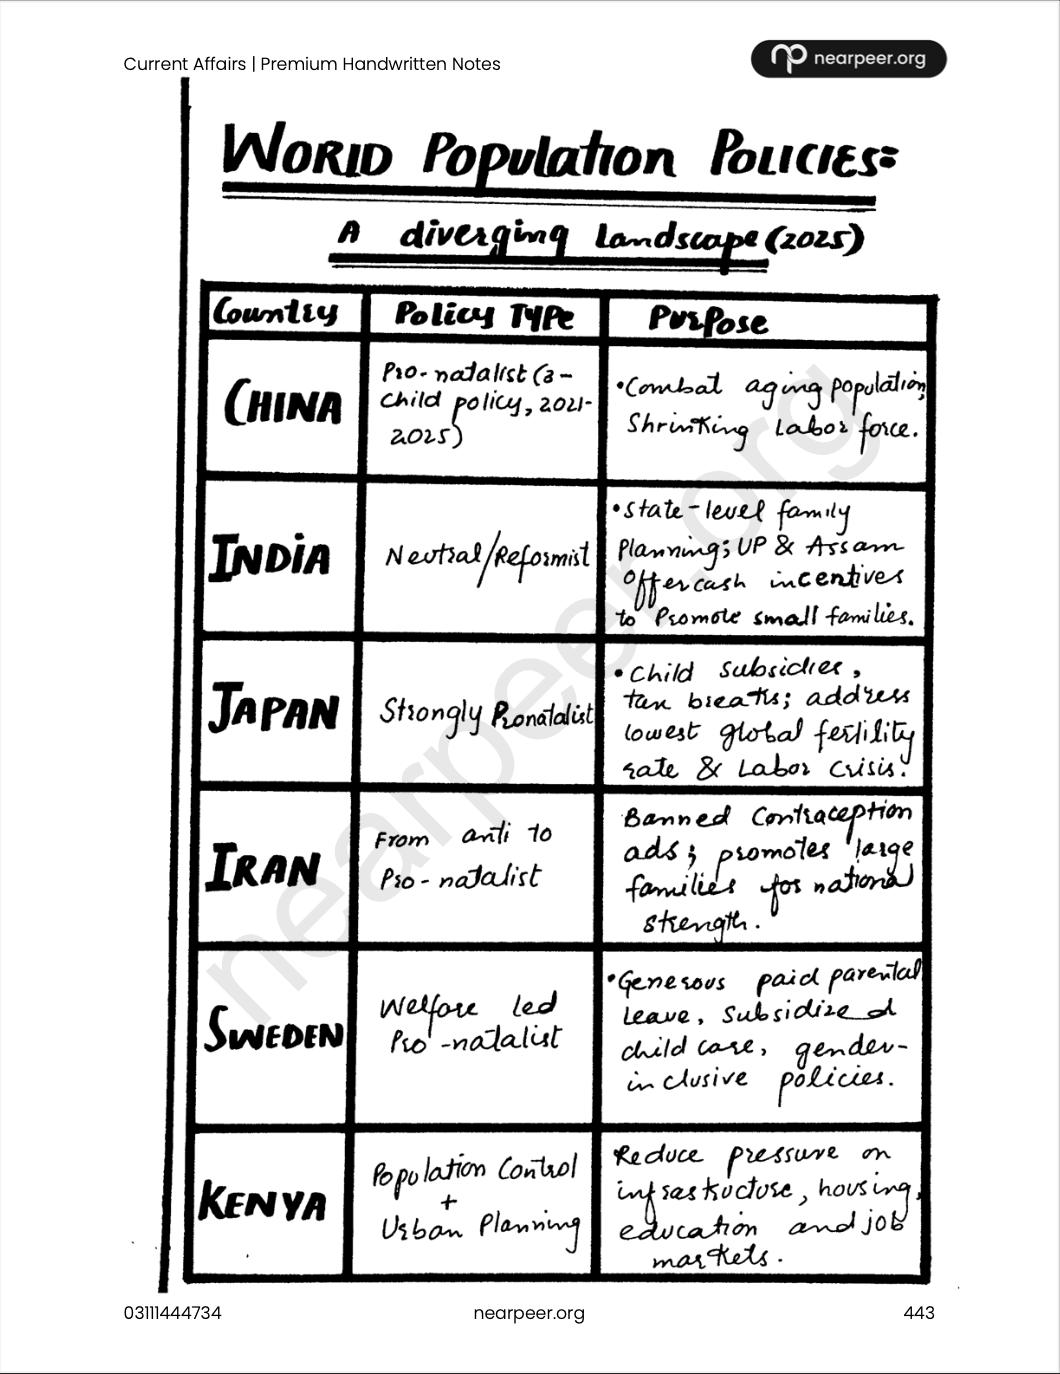 Current Affairs | Premium Handwritten Notes
nearpeer.org
WORlD Population POLICIES:
A diverging landscape (2025)
Country
Policy TYPe
Purpose
CHINA
Pro-natalist (3-
Child policy, 2021-
2025)
•Combat aging population,
Shrinking Labor force.
INDiA
Neutral/Reformist
•State-level family
Planning; UP & Assam
Offer cash incentives
to Promote small families.
JAPAN
Strongly Pronatalist
•Child subsidies,
tax breaks; address
lowest global fertility
rate & Labor Crisis.
IRAN
From anti to
Pro-natalist
Banned Contraception
ads; promotes large
families for national
strength.
SWEDEN
Welfare led
Pro-natalist
•Generous paid parental
Leave, Subsidized
child care, gender-
inclusive policies.
KENYA
Population Control
+
Urban Planning
Reduce pressure on
infrastructure, housing,
education and job
markets.
nearpeer.org
03111444734
nearpeer.org
443